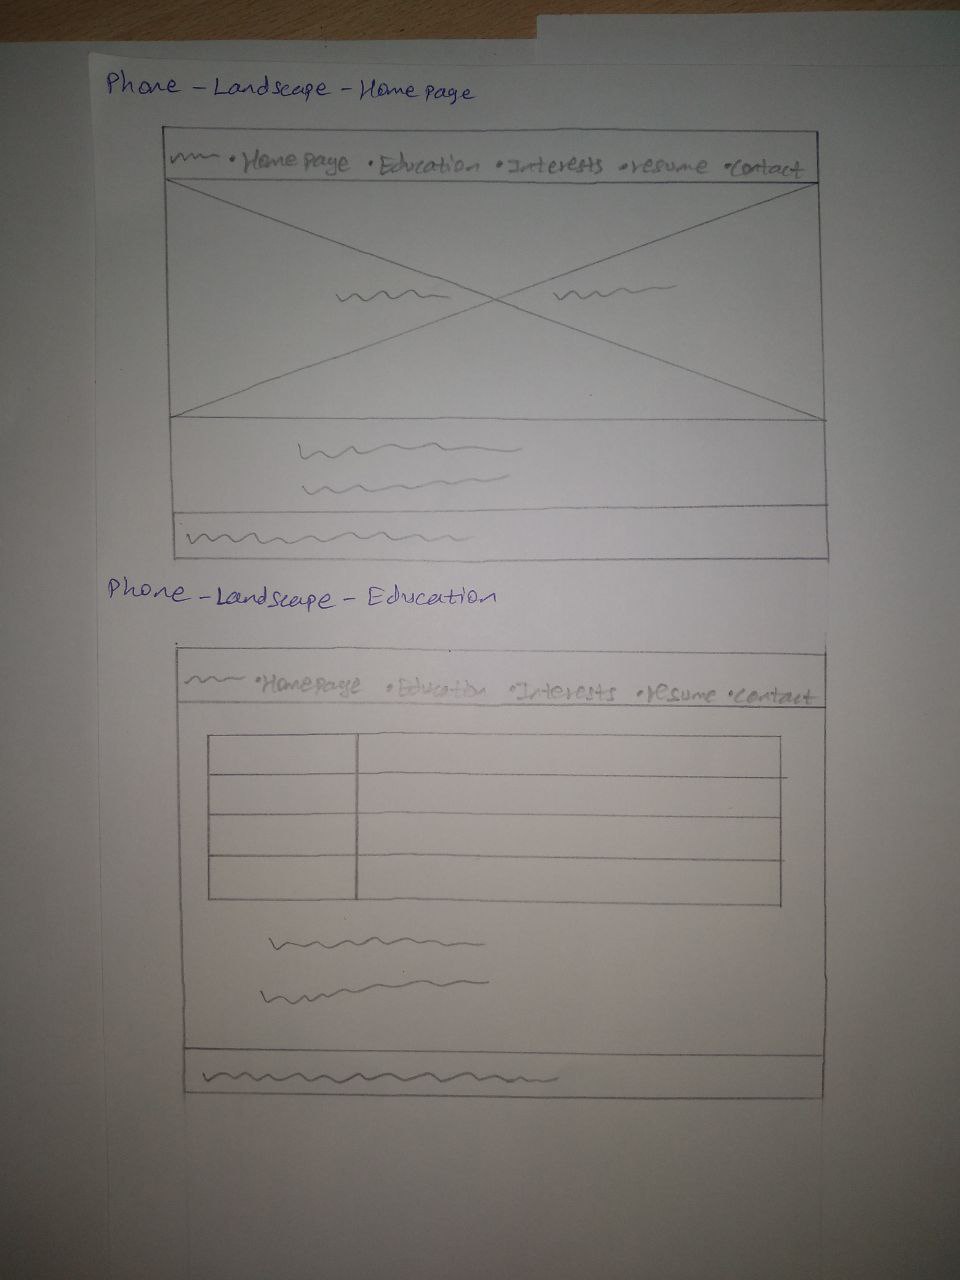 Phone - Landscape - Home page
• Home page • Education • Interests • resume • contact
Phone - Landscape - Education
• Homepage • Education • Interests • resume • contact